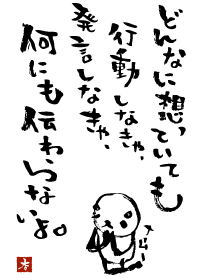 どんなに想っていても
行動しなきゃ、
発言しなきゃ、
何にも伝わらないよ。